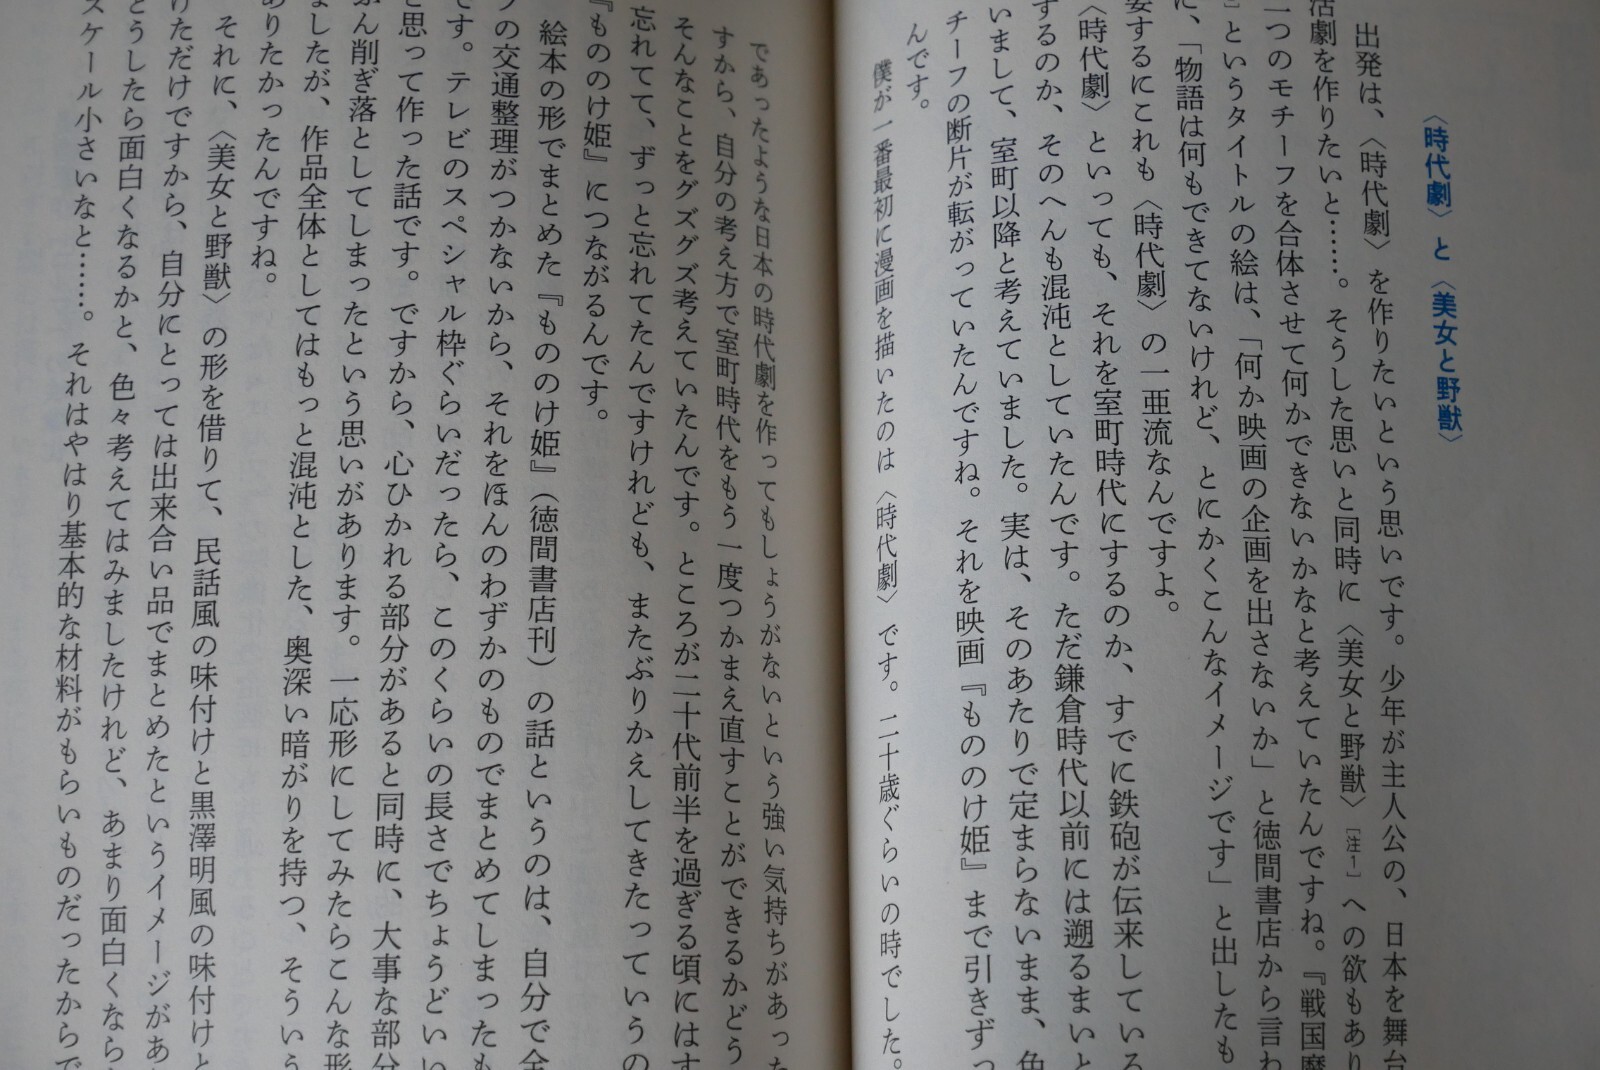 〈時代劇〉と〈美女と野獣〉
出発は、〈時代劇〉を作りたいという思いです。少年が主人公の、日本を舞台
活劇を作りたいと……。そうした思いと同時に〈美女と野獣〉［注1］への欲もあり
二つのモチーフを合体させて何かできないかなと考えていたんですね。『戦国魔
』というタイトルの絵は、「何か映画の企画を出さないか」と徳間書店から言わ
に、「物語は何もできてないけれど、とにかくこんなイメージです」と出したも
要するにこれも〈時代劇〉の一亜流なんですよ。
〈時代劇〉といっても、それを室町時代にするのか、すでに鉄砲が伝来している
するのか、そのへんも混沌としていたんです。ただ鎌倉時代以前には遡るまいと
いまして、室町以降と考えていました。実は、そのあたりで定まらないまま、色
チーフの断片が転がっていたんですね。それを映画『もののけ姫』まで引きずっ
んです。
僕が一番最初に漫画を描いたのは〈時代劇〉です。二十歳ぐらいの時でした。
であったような日本の時代劇を作ってもしょうがないという強い気持ちがあった
すから、自分の考え方で室町時代をもう一度つかまえ直すことができるかどう
そんなことをグズグズ考えていたんです。ところが二十代前半を過ぎる頃にはす
忘れてて、ずっと忘れてたんですけれども、またぶりかえしてきたっていうの
『もののけ姫』につながるんです。
絵本の形でまとめた『もののけ姫』（徳間書店刊）の話というのは、自分で全
の交通整理がつかないから、それをほんのわずかのものでまとめてしまったも
です。テレビのスペシャル枠ぐらいだったら、このくらいの長さでちょうどいい
と思って作った話です。ですから、心ひかれる部分があると同時に、大事な部分
ぶん削ぎ落としてしまったという思いがあります。一応形にしてみたらこんな形
ましたが、作品全体としてはもっと混沌とした、奥深い暗がりを持つ、そういう
ありたかったんですね。
それに、〈美女と野獣〉の形を借りて、民話風の味付けと黒澤明風の味付けと
けただけですから、自分にとっては出来合い品でまとめたというイメージがあ
どうしたら面白くなるかと、色々考えてはみましたけれど、あまり面白くなら
スケール小さいなと……。それはやはり基本的な材料がもらいものだったからで